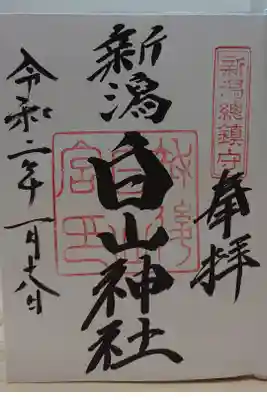 新潟總鎮守
奉拝
新潟
白山神社
令和二年一月十八日